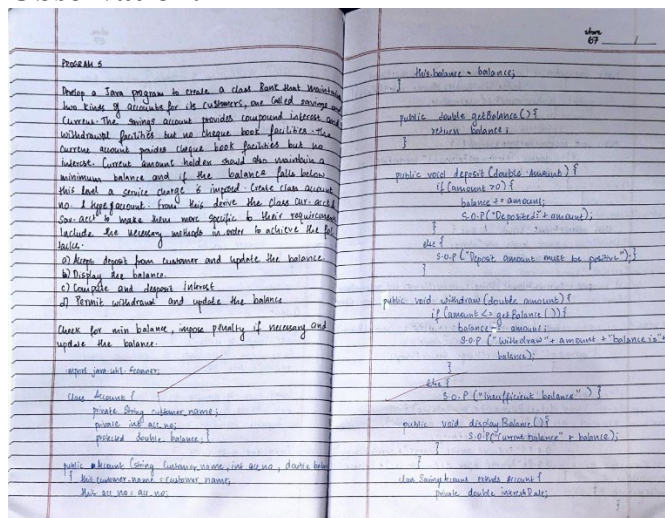 Observation:
PROGRAM 5
Develop a Java program to create a class Bank that maintains
two kinds of accounts for its customers, one called savings and
current. The savings account provides compound interest and
withdrawal facilities but no cheque book facilities. The
current account provides cheque book facilities but no
interest. Current account holders should also maintain a
minimum balance and if the balance falls below
this level a service charge is imposed. Create class account
no. & type of account. From this derive the class cur-acct &
sav-acct to make them more specific to their requirements
Include the necessary methods in order to achieve the fol
tasks.
a) Accept deposit from customer and update the balance.
b) Display the balance.
c) Compute and deposit interest
d) Permit withdrawal and update the balance
Check for min balance, impose penalty if necessary and
update the balance.
import java.util.Scanner;
class Account {
private String customer_name;
private int acc_no;
protected double balance;
public Account (String customer_name, int acc_no, double
{ this.customer_name = customer_name;
this.acc_no = acc_no;
67
this.balance = balance;
}
public double getBalance() {
return balance;
}
public void deposit (double amount) {
if (amount > 0) {
balance += amount;
S.O.P ("Deposited" + amount);
}
else {
S.O.P ("Deposit amount must be positive"); }
}
public void withdraw (double amount) {
if (amount <= getBalance ()) {
balance -= amount;
S.O.P ("Withdraw" + amount + "balance is" +
balance);
}
else {
S.O.P ("Insufficient balance") }
public void displayBalance () {
S.O.P("Current balance" + balance);
}
class SavingAccount extends Account {
private double interestRate;